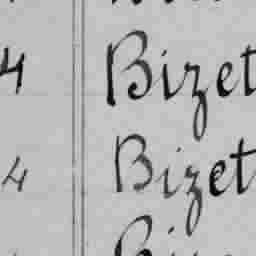 4 Bizet
4 Bizet